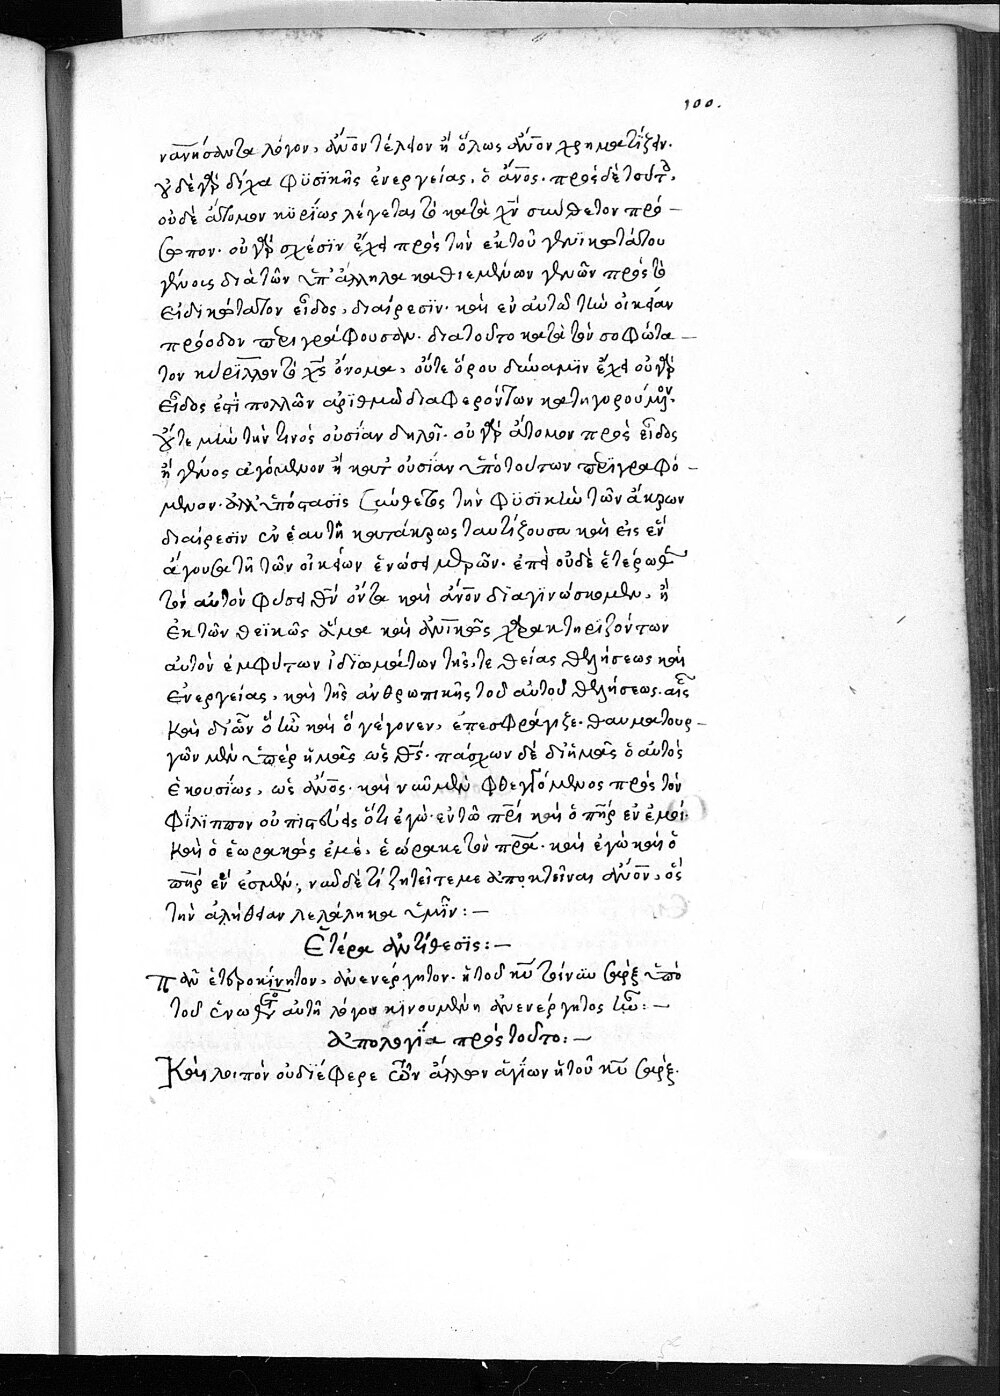 100.
νανήσαντα λόγον, ἄνον τέλειον ἢ ὅλως ἄνον χρηματίζειν.
οὐδὲ γὰρ δίχα φϋσϊκῆς ἐνεργείας, ὁ ἄνος. πρὸς δὲ τούτοις,
οὐδὲ ἄτομον κϋρΐως λέγεται τὸ κατὰ χν σύνθετον πρό–
σωπον. οὐ γὰρ σχέσϊν ἔχει πρὸς τὴν ἐκ τοῦ γενϊκωτάτου
γένους διὰ τῶν ὑπ' ἄλληλα καθιεμένων γενῶν πρὸς τὸ
εἰδϊκώτατον εἶδος, διαίρεσϊν. καὶ ἐν αὐτῶ τὴν οἰκείαν
πρόοδον περιγράφουσαν. διατοῦτο κατὰ τὸν σοφώτα–
τον κύριλλον τὸ χς ὄνομα, οὔτε ὅρου δύναμϊν ἔχει οὐ γὰρ
εἶδος ἐπὶ πολλῶν ἀρϊθμῶ διαφερόντων κατηγορούμενον.
οὔτε μὴν τὴν τινὸς οὐσίαν δηλοῖ. οὐ γὰρ ἄτομον πρὸς εἶδος
ἢ γένος ἀγόμενον ἢ κατ' οὐσίαν ὑπὸ τούτων περϊγραφό–
μενον. ἀλλ' ὑπόστασϊς σύνθετος τὴν φϋσϊκὴν τῶν ἄκρων
διαίρεσϊν ἐν ἑαυτῆ κατάκρως ταυτίζουσα καὶ εἰς ἓν
ἄγουσα τῆ τῶν οἰκείων ἑνώσει μερῶν. ἐπεὶ οὐδὲ ἑτέρωθεν
τὸν αὐτὸν φύσει θν ὄντα καὶ ἄνον δϊαγινώσκομεν, ἢ
ἐκ τῶν θεϊκῶς ἅμα καὶ ἀνϊκῶς χαρακτηρϊζόντων
αὐτὸν ἐμφύτων ἰδϊωμάτων τῆς, τε θείας θελήσεως καὶ
ἐνεργείας, καὶ τῆς ἀνθρωπικῆς τοῦ αὐτοῦ θελήσεως. αἷς
καὶ δι' ὧν ὃ ἦν καὶ ὃ γέγονεν, ἐπεσφράγιζε. θαυματουρ–
γῶν μὲν ὑπὲρ ἡμᾶς ὡς θς. πάσχων δὲ δι' ἡμᾶς ὁ αὐτὸς
ἑκουσΐως, ὡς ἄνος. καὶ νῦν μὲν φθεγγόμενος πρὸς τὸν
φΐλϊππον οὐ πϊστεύεις ὅτι ἐγὼ ἐν τῶ πρι καὶ ὁ πηρ ἐν ἐμοὶ.
καὶ ὁ ἑωρακὼς ἐμὲ, ἑώρακε τὸν πρα. καὶ ἐγὼ καὶ ὁ
πηρ ἕν ἐσμεν; νῦν δὲ τί ζητεῖτε με ἀποκτεῖναι ἄνον, ὃς
τὴν ἀλήθειαν λελάληκα ὑμῖν: –
Ἑτέρα ἀντίθεσϊς: –
Πᾶν ἑτεροκίνητον, ἀνενέργητον. ἡ τοῦ κυ τοίνϋν σὰρξ ὑπὸ
τοῦ ἑνωθέντος αὐτῆ λόγου κϊνουμένη ἀνενέργητος ἦν: –
Ἀπολογΐα πρὸς τοῦτο: –
Καὶ λοιπὸν οὐ διέφερε τῶν ἄλλων ἁγΐων ἡ τοῦ κυ σὰρξ.